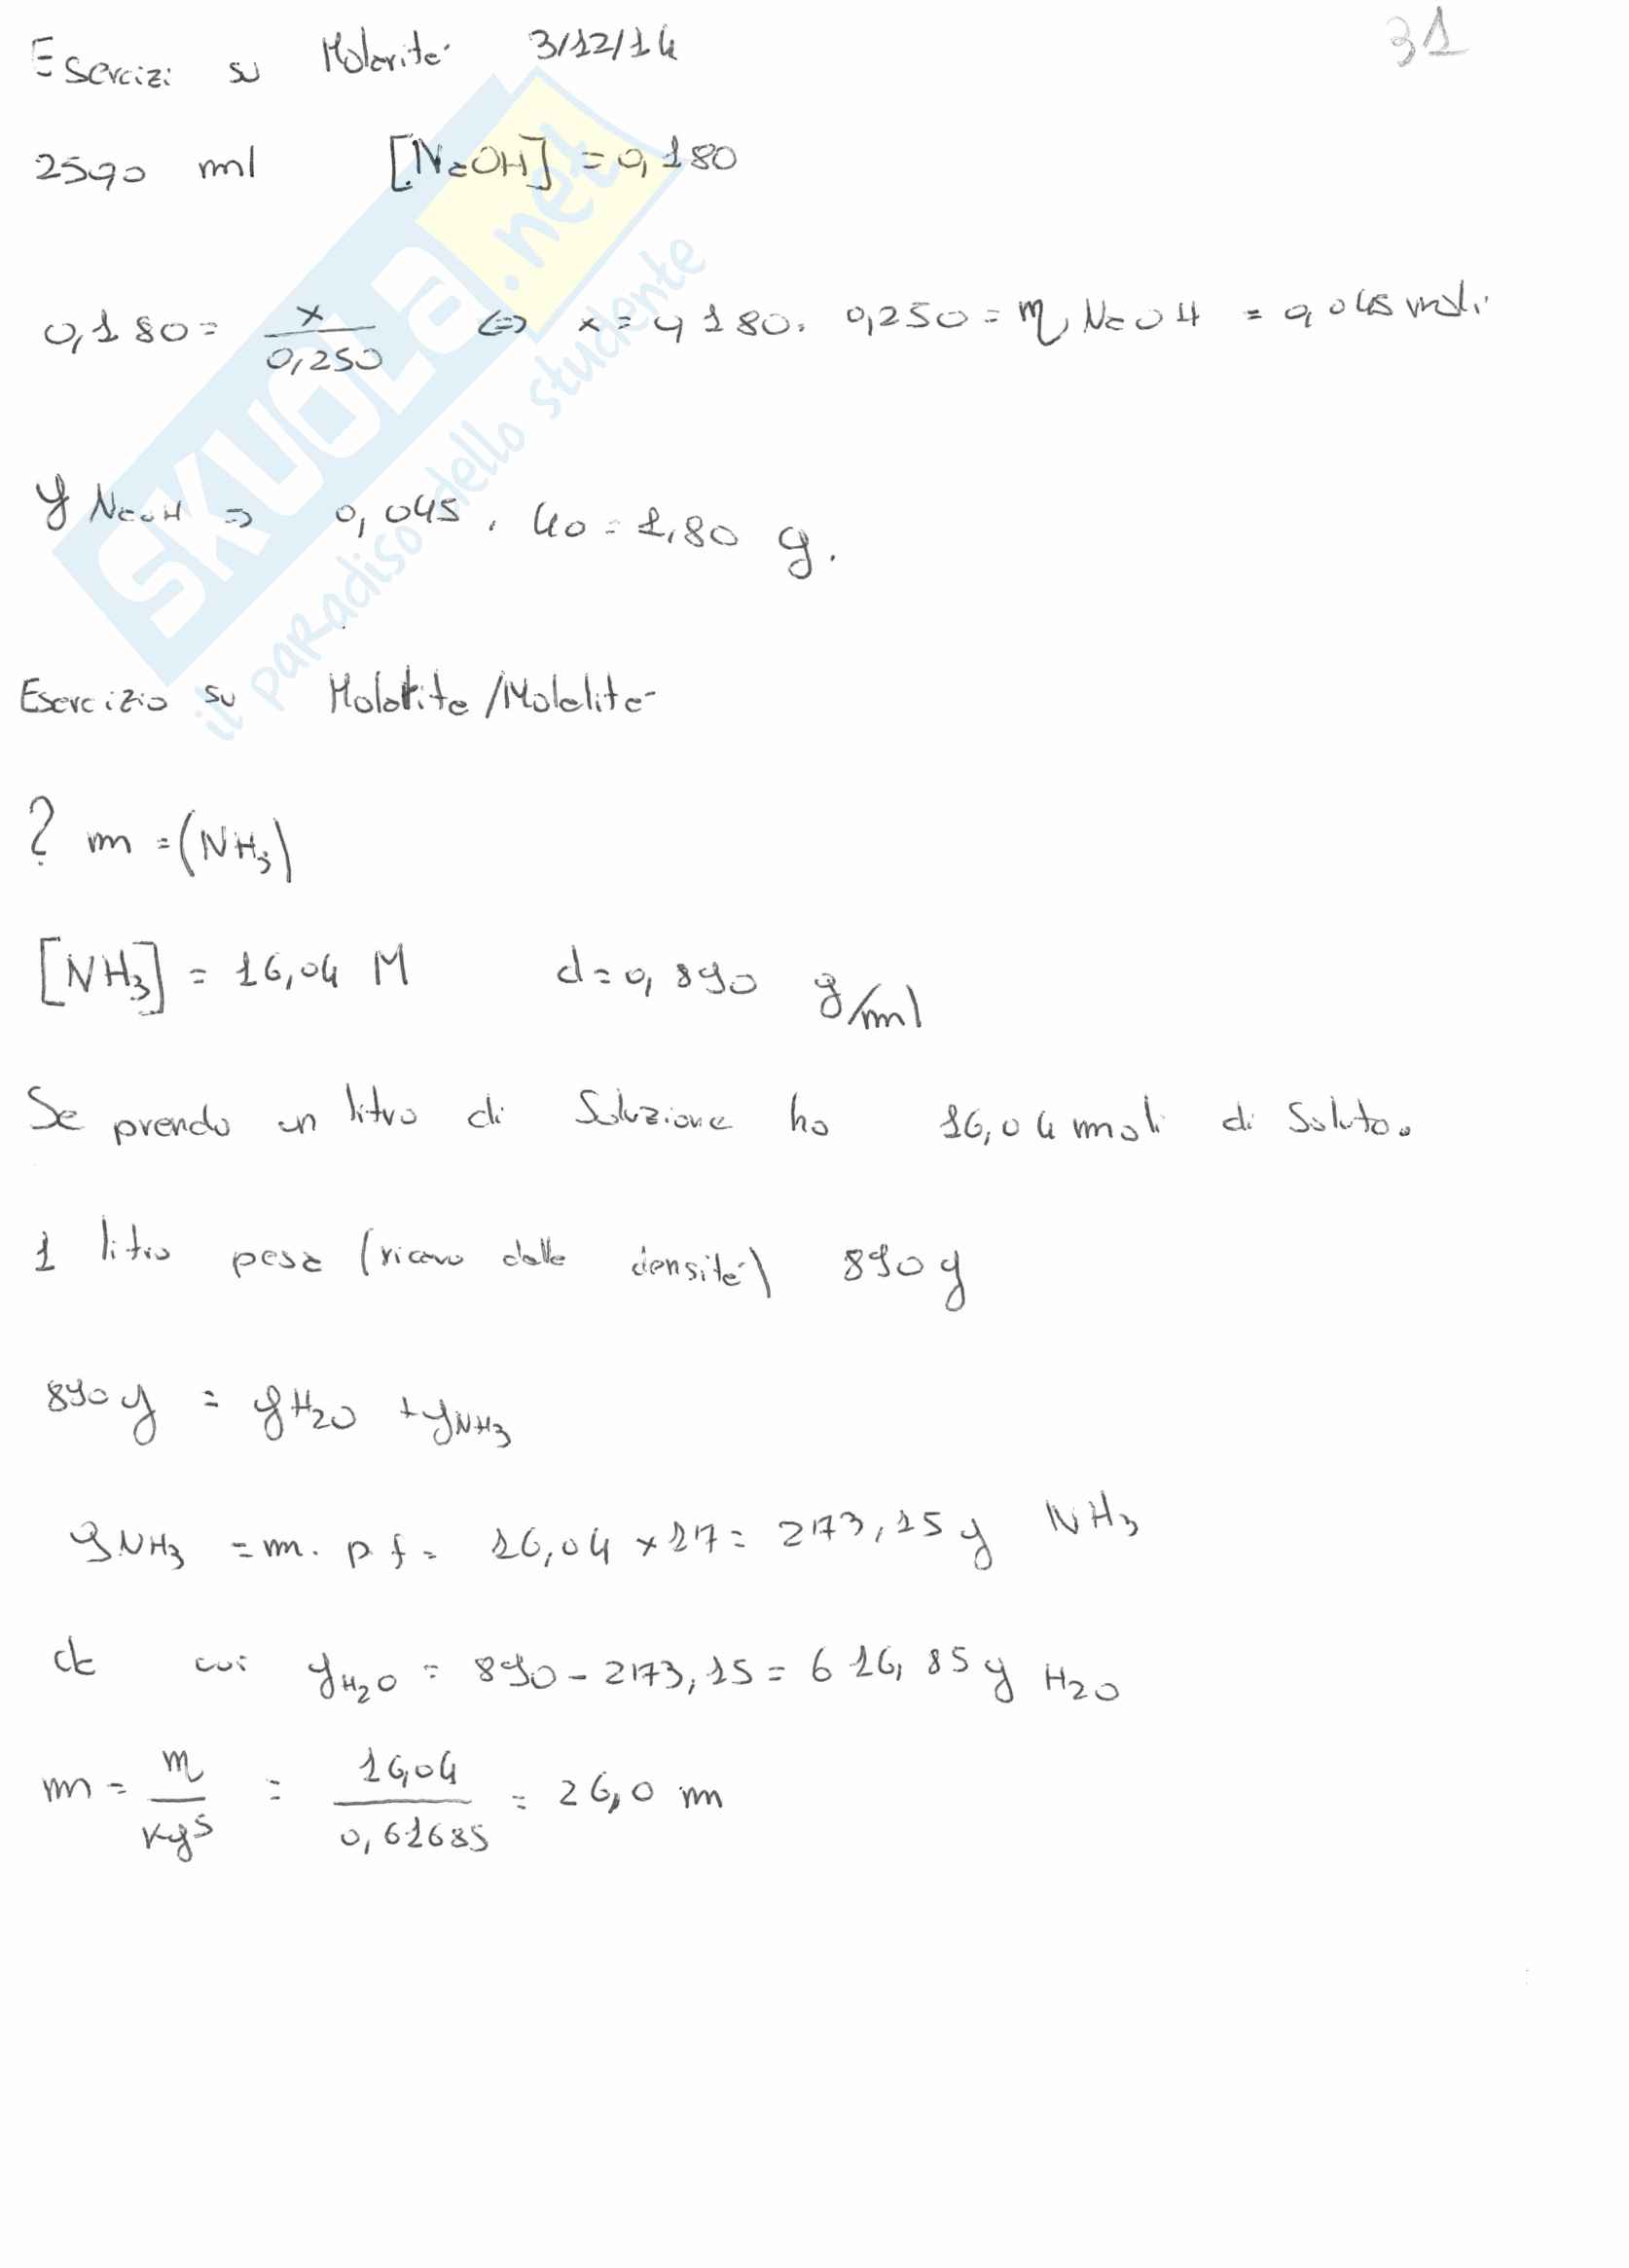 Esercizi su Molarità 3/12/14
31
250,0 ml [NaOH] = 0,180
0,180 = x / 0,250 <=> x = 0,180 · 0,250 = n NaOH = 0,045 moli
g NaOH => 0,045 · 40 = 1,80 g.
Esercizio su Molarità/Molalità
? m = (NH3)
[NH3] = 16,04 M d = 0,890 g/ml
Se prendo un litro di Soluzione ho 16,04 moli di Soluto.
1 litro pesa (ricavo dalla densità) 890 g
890 g = g H2O + g NH3
g NH3 = n · pf = 16,04 x 17 = 273,15 g NH3
da cui g H2O = 890 - 273,15 = 616,85 g H2O
m = n / kg s = 16,04 / 0,61685 = 26,0 m
SKUOLA.net
il paradiso dello studente